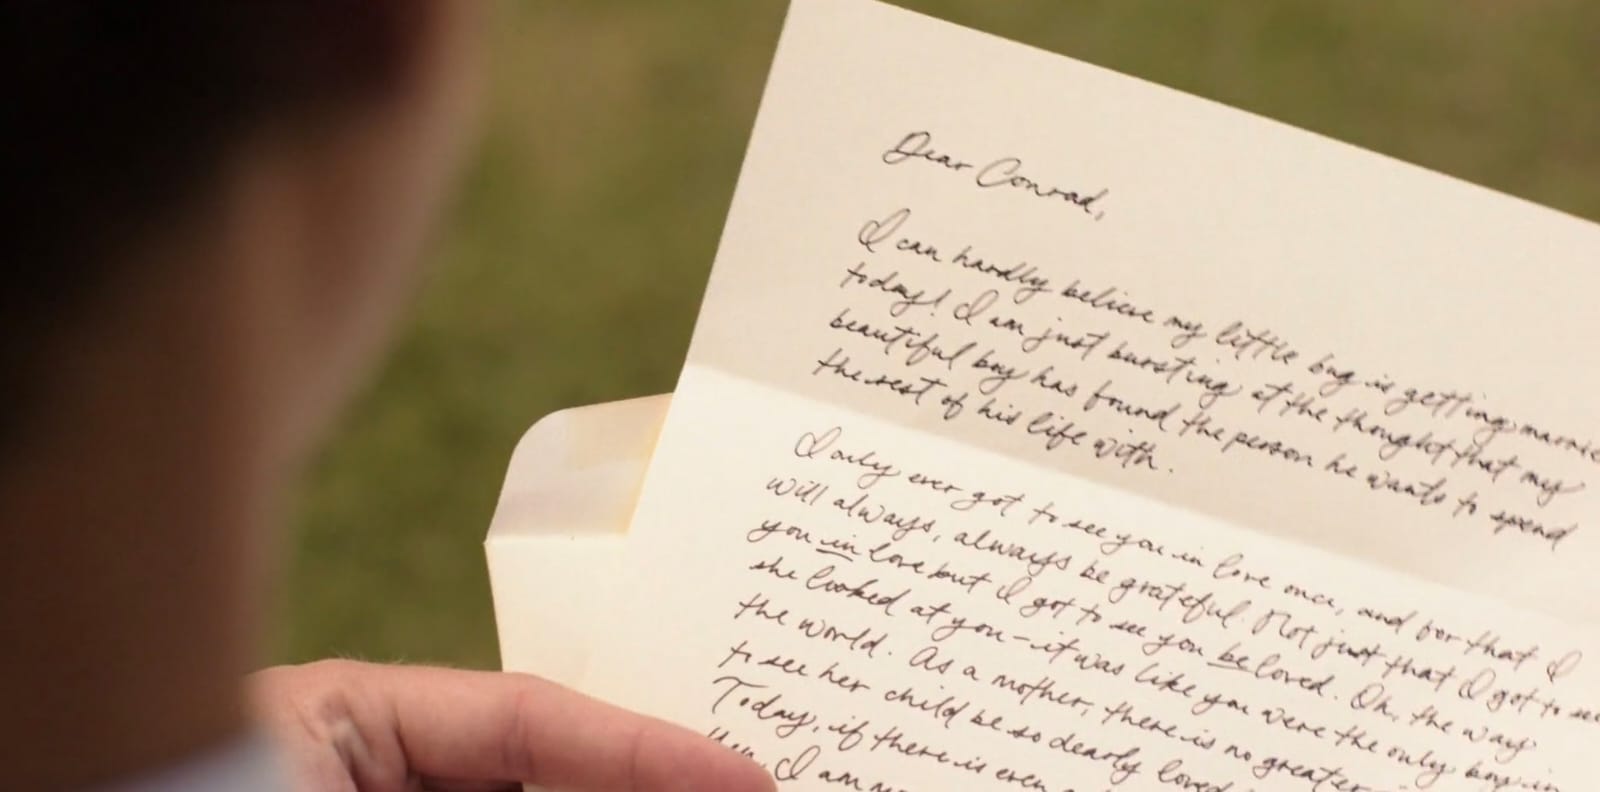 Dear Conrad,
I can hardly believe my little boy is getting married
today! I am just bursting at the thought that my
beautiful boy has found the person he wants to spend
the rest of his life with.
I only ever got to see you in love once, and for that I
will always, always be grateful. Not just that I got to see
you in love but I got to see you be loved. Oh, the way
she looked at you - it was like you were the only boy in
the world. As a mother, there is no greater
to see her child be so dearly loved
Today, if there is even
I am